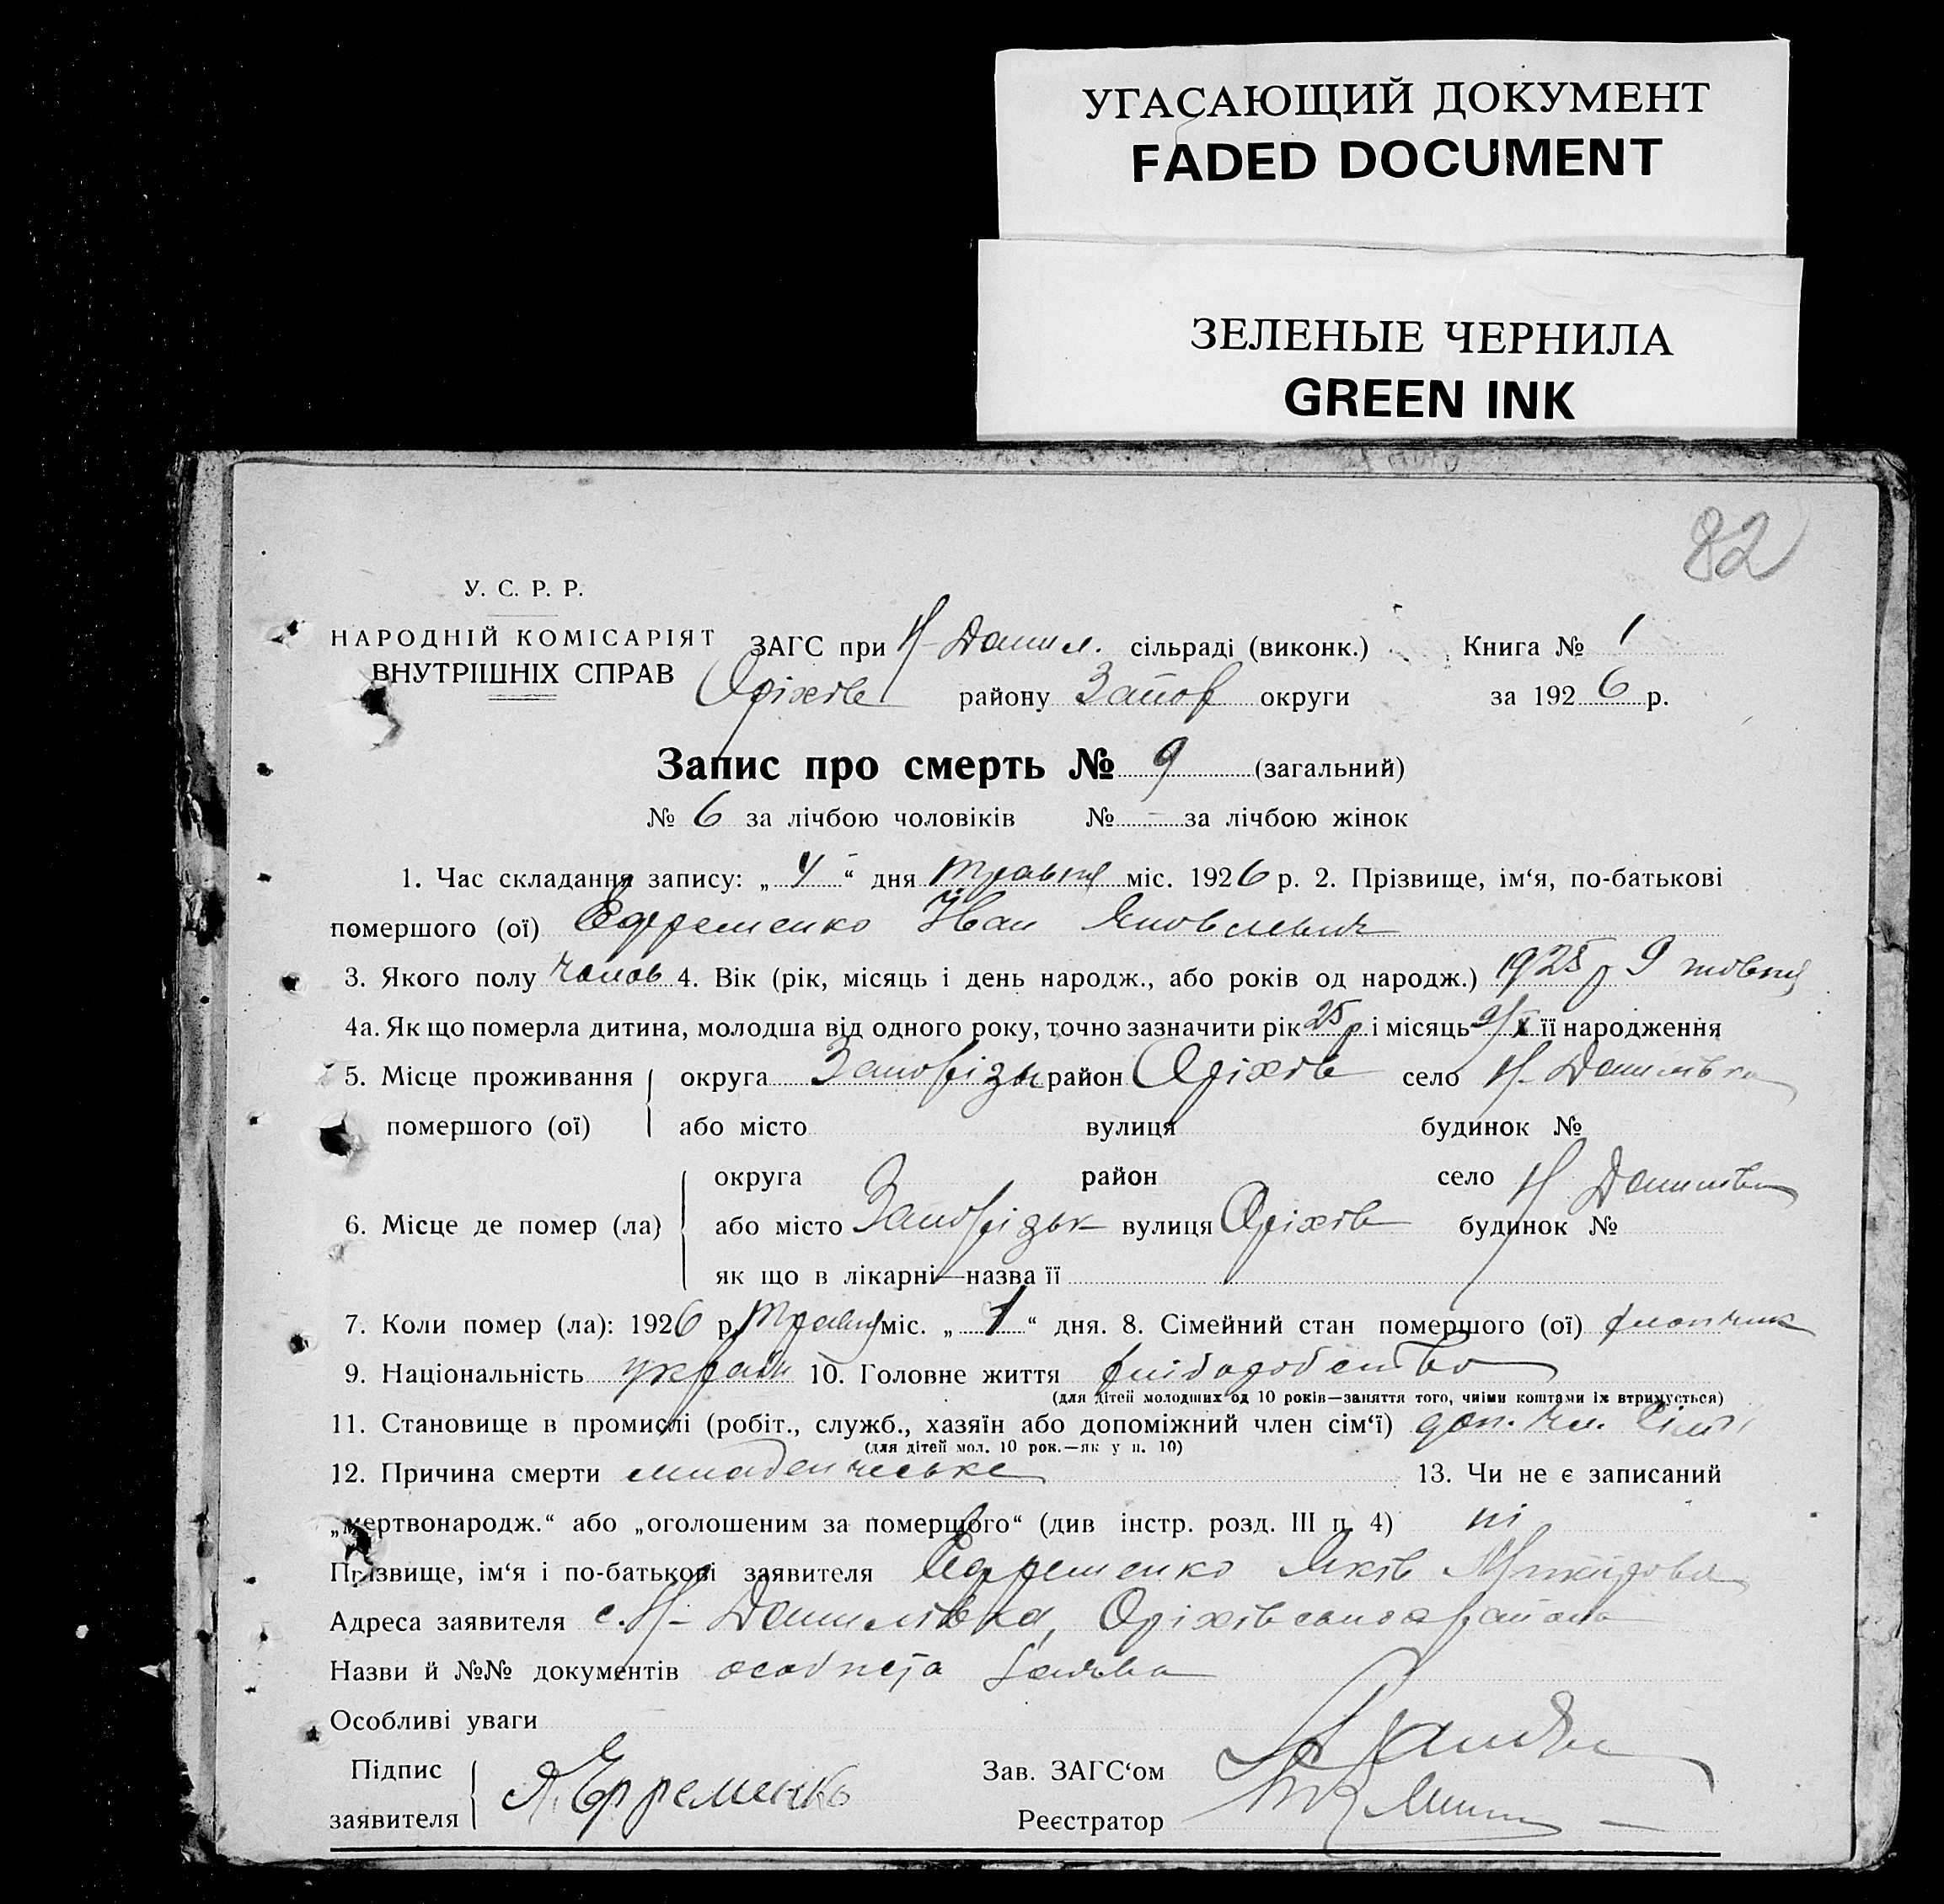 УГАСАЮЩИЙ ДОКУМЕНТ
FADED DOCUMENT
ЗЕЛЕНЫЕ ЧЕРНИЛА
GREEN INK
82
У. С. Р. Р.
НАРОДНІЙ КОМІСАРІЯТ
ВНУТРІШНІХ СПРАВ
ЗАГС при Н-Данил. сільраді (виконк.) Книга № 1
Оріхів району Запор округи за 1926 р.
Запис про смерть № 9 (загальний)
№ 6 за лічбою чоловіків № - за лічбою жінок
1. Час складання запису: „4“ дня травня міс. 1926 р. 2. Прізвище, ім‘я, по-батькові
помершого (ої) Єфременко Іван Яковлевич
3. Якого полу чолов 4. Вік (рік, місяць і день народж., або років од народж.) 1925 р 9 жовтня
4а. Як що померла дитина, молодша від одного року, точно зазначити рік 25 р і місяць 9/X її народження
5. Місце проживання округа Запорізьк район Оріхів село Н-Данилівка
помершого (ої) або місто вулиця будинок №
округа район село Н Данилівка
6. Місце де помер (ла) або місто Запорізьк вулиця Оріхів будинок №
як що в лікарні—назва її
7. Коли помер (ла): 1926 р. травня міс. „1“ дня. 8. Сімейний стан помершого (ої) хлопчик
9. Національність україн 10. Головне життя хлібодобство
(для дітей молодших од 10 років—заняття того, чиїми коштами їх втримується)
11. Становище в промислі (робіт., служб., хазяїн або допоміжний член сім‘ї) доп. чл. сімї
(для дітей мол. 10 рок.—як у п. 10)
12. Причина смерти младенчеське 13. Чи не є записаний
„мертвонародж.“ або „оголошеним за помершого“ (див інстр. розд. III п. 4) ні
Прізвище, ім‘я і по-батькові заявителя Єфременко Яків
Адреса заявителя с. Н-Данилівка, Оріхівського району
Назви й №№ документів особиста заява
Особливі уваги
Підпис
заявителя Я. Єфременко
Зав. ЗАГС‘ом
Реєстратор